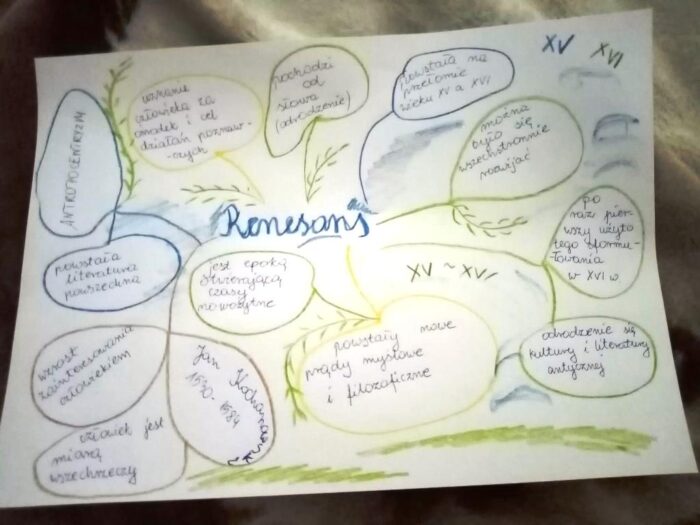 XV XVI
ANTROPOCENTRYZM
uznanie
człowieka za
ośrodek i cel
działań poznaw-
-czych
pochodzi
od
słowa
(odrodzenie)
powstała na
przełomie
wieku XV a XVI
można
było się
wszechstronnie
rozwijać
po
raz pier-
wszy użyto
tego sformu-
łowania
w XVI w.
Renesans
powstała
literatura
powszechna
jest epoką
otwierającą
czasy
nowożytne
XV ~ XVI
powstały nowe
prądy mysłowe
i filozoficzne
odrodzenie się
kultury i literatury
antycznej
wzrost
zainteresowania
człowiekiem
Jan Kochanowski
1530-1584
człowiek jest
miarą
wszechrzeczy